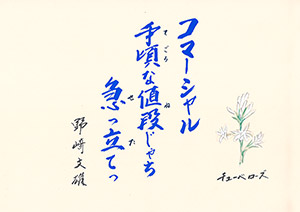 コマーシャル
手頃な値段じゃち
急っ立てっ
野崎文雄
チューベローズ